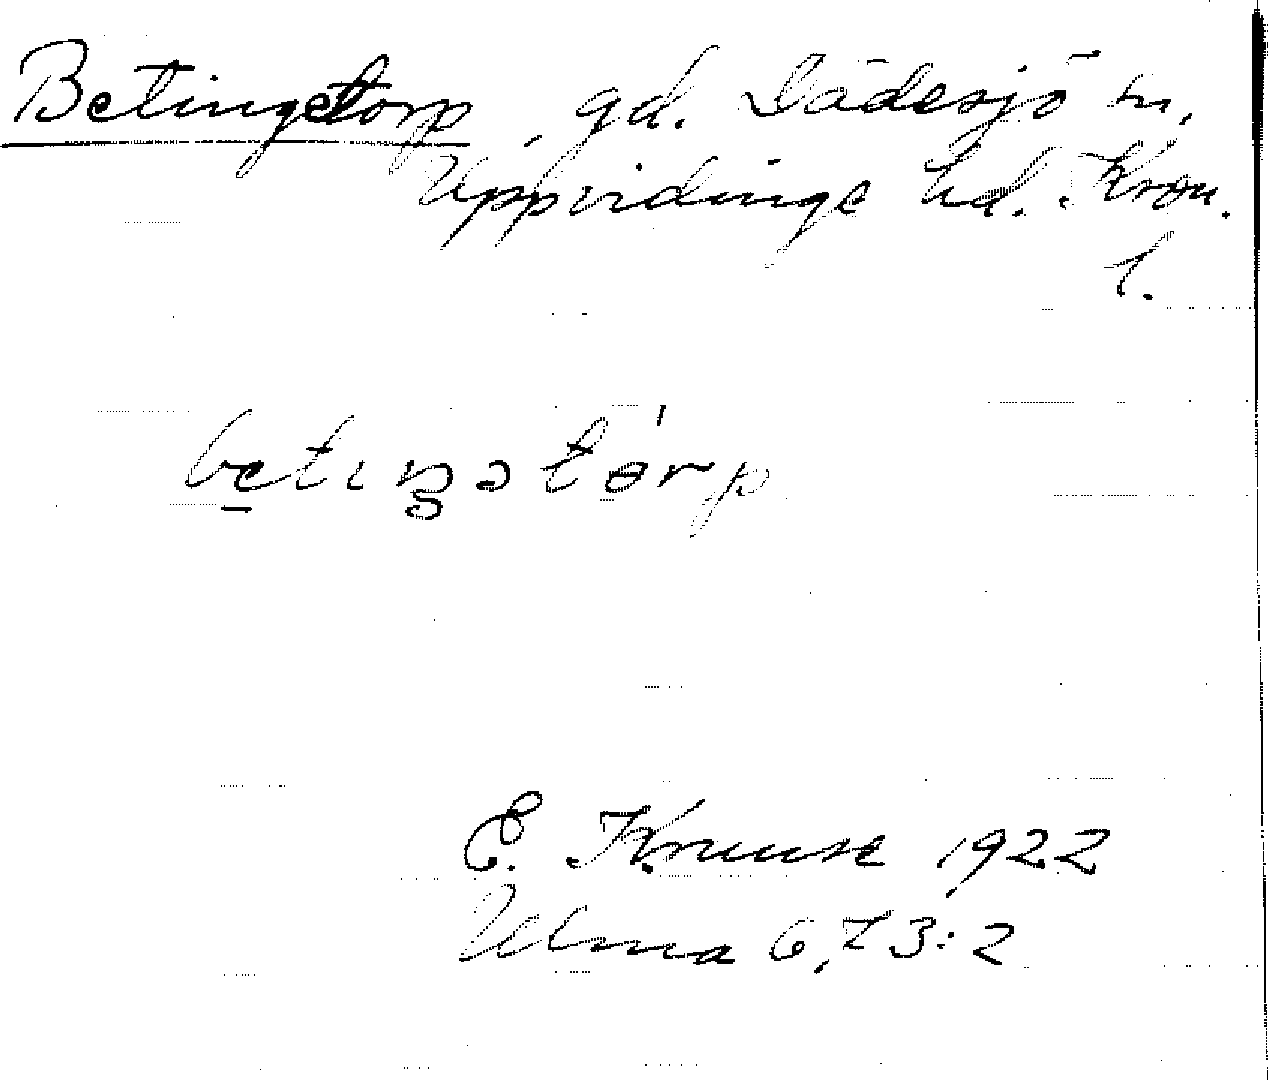 Betingetorp, gd. Dädesjö sn,
Uppvidinge hd. Kron.
l.
betıŋətɵrp
E. Kruuse 1922
Ulma 673:2